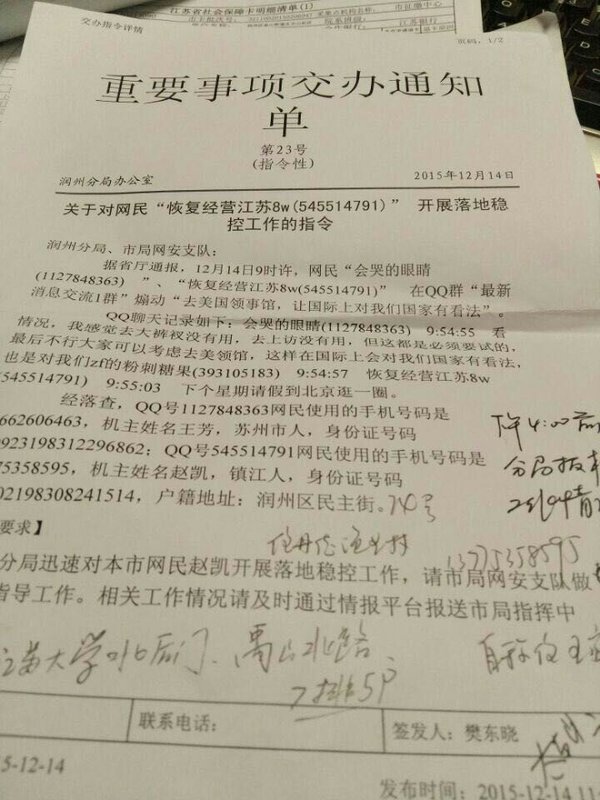 江苏省社会保障卡明细清单(1)
交办指令详情
页码：1/2
重要事项交办通知
单
第23号
(指令性)
润州分局办公室 2015年12月14日
关于对网民“恢复经营江苏8w(545514791)” 开展落地稳
控工作的指令
润州分局、市局网安支队：
据省厅通报，12月14日9时许，网民“会哭的眼睛
(1127848363) ”、“恢复经营江苏8w(545514791)” 在QQ群“最新
消息交流1群” 煽动“去美国领事馆，让国际上对我们国家有看法”。
QQ聊天记录如下：会哭的眼睛(1127848363) 9:54:55 看
情况，我感觉去大裤衩没有用，去上访没有用，但这都是必须要试的，
最后不行大家可以考虑去美领馆，这样在国际上会对我们国家有看法，
也是对我们zf的粉刺糖果(393105183) 9:54:57 恢复经营江苏8w
(545514791) 9:55:03 下个星期请假到北京逛一圈。
经落查，QQ号1127848363网民使用的手机号码是
662606463，机主姓名王芳，苏州市人，身份证号码
0923198312296862；QQ号545514791网民使用的手机号码是
75358595，机主姓名赵凯，镇江人，身份证号码
02198308241514，户籍地址：润州区民主街。
要求】
分局迅速对本市网民赵凯开展落地稳控工作，请市局网安支队做
指导工作。相关工作情况请及时通过情报平台报送市局指挥中
13775358595
联系电话： 签发人：樊东晓
5-12-14
发布时间：2015-12-14 11